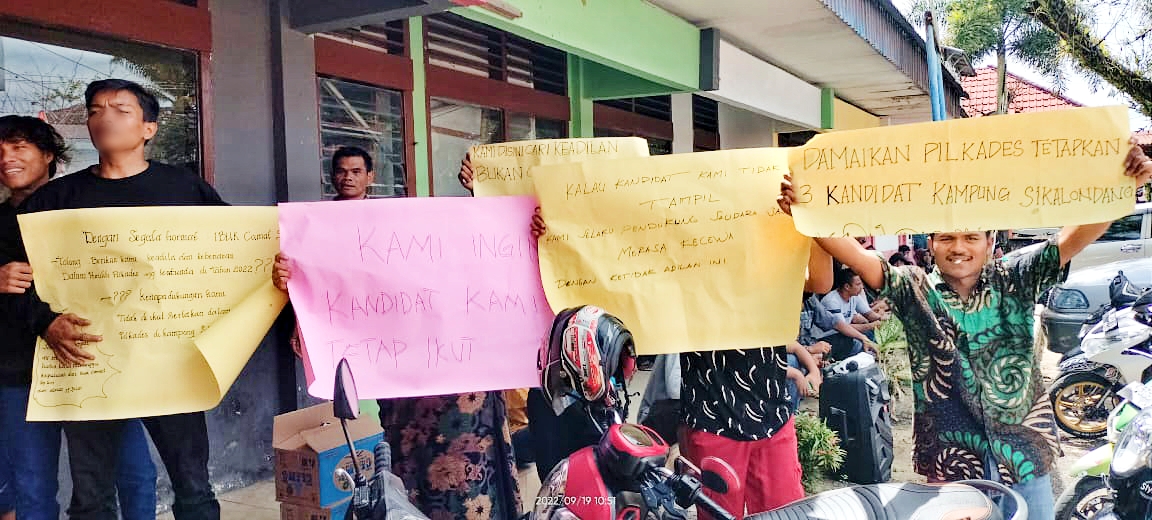 Dengan Segala hormat Bpk Camat
Tolong Berikan kami keadilan dan kebenaran
Dalam Pilkades yg di Tahun 2022 ???
??? Kenapa dukungan kami
Tidak di ikut sertakan dalam
Pilkades di kampung
KAMI INGIN
KANDIDAT KAMI
TETAP IKUT
KAMI DISINI CARI KEADILAN
BUKAN
KALAU KANDIDAT KAMI TIDAK
TAMPIL
KAMI SELAKU PENDUKUNG
MERASA KECEWA
DENGAN KETIDAK ADILAN INI
DAMAIKAN PILKADES TETAPKAN
3 KANDIDAT KAMPUNG SIKALONDANG
2022/09/19 10:51